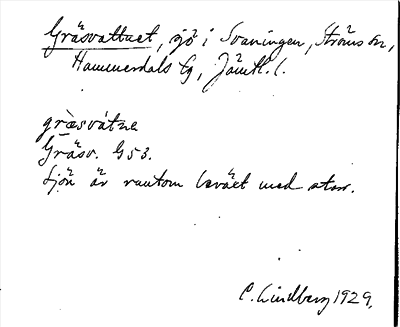 Gräsvattnet, sjö i Svaningen, Ströms sn,
Hammerdals tg, Jämtl. l.
gräsvátne
Gräsv. G 53.
Sjön är runtom bevä̂xt med starr.
C. Lindberg 1929.